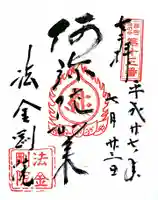 奉拝
平成廿七年
六月廿二日
阿弥陀如来
法金剛院
第十三番
法金
剛院